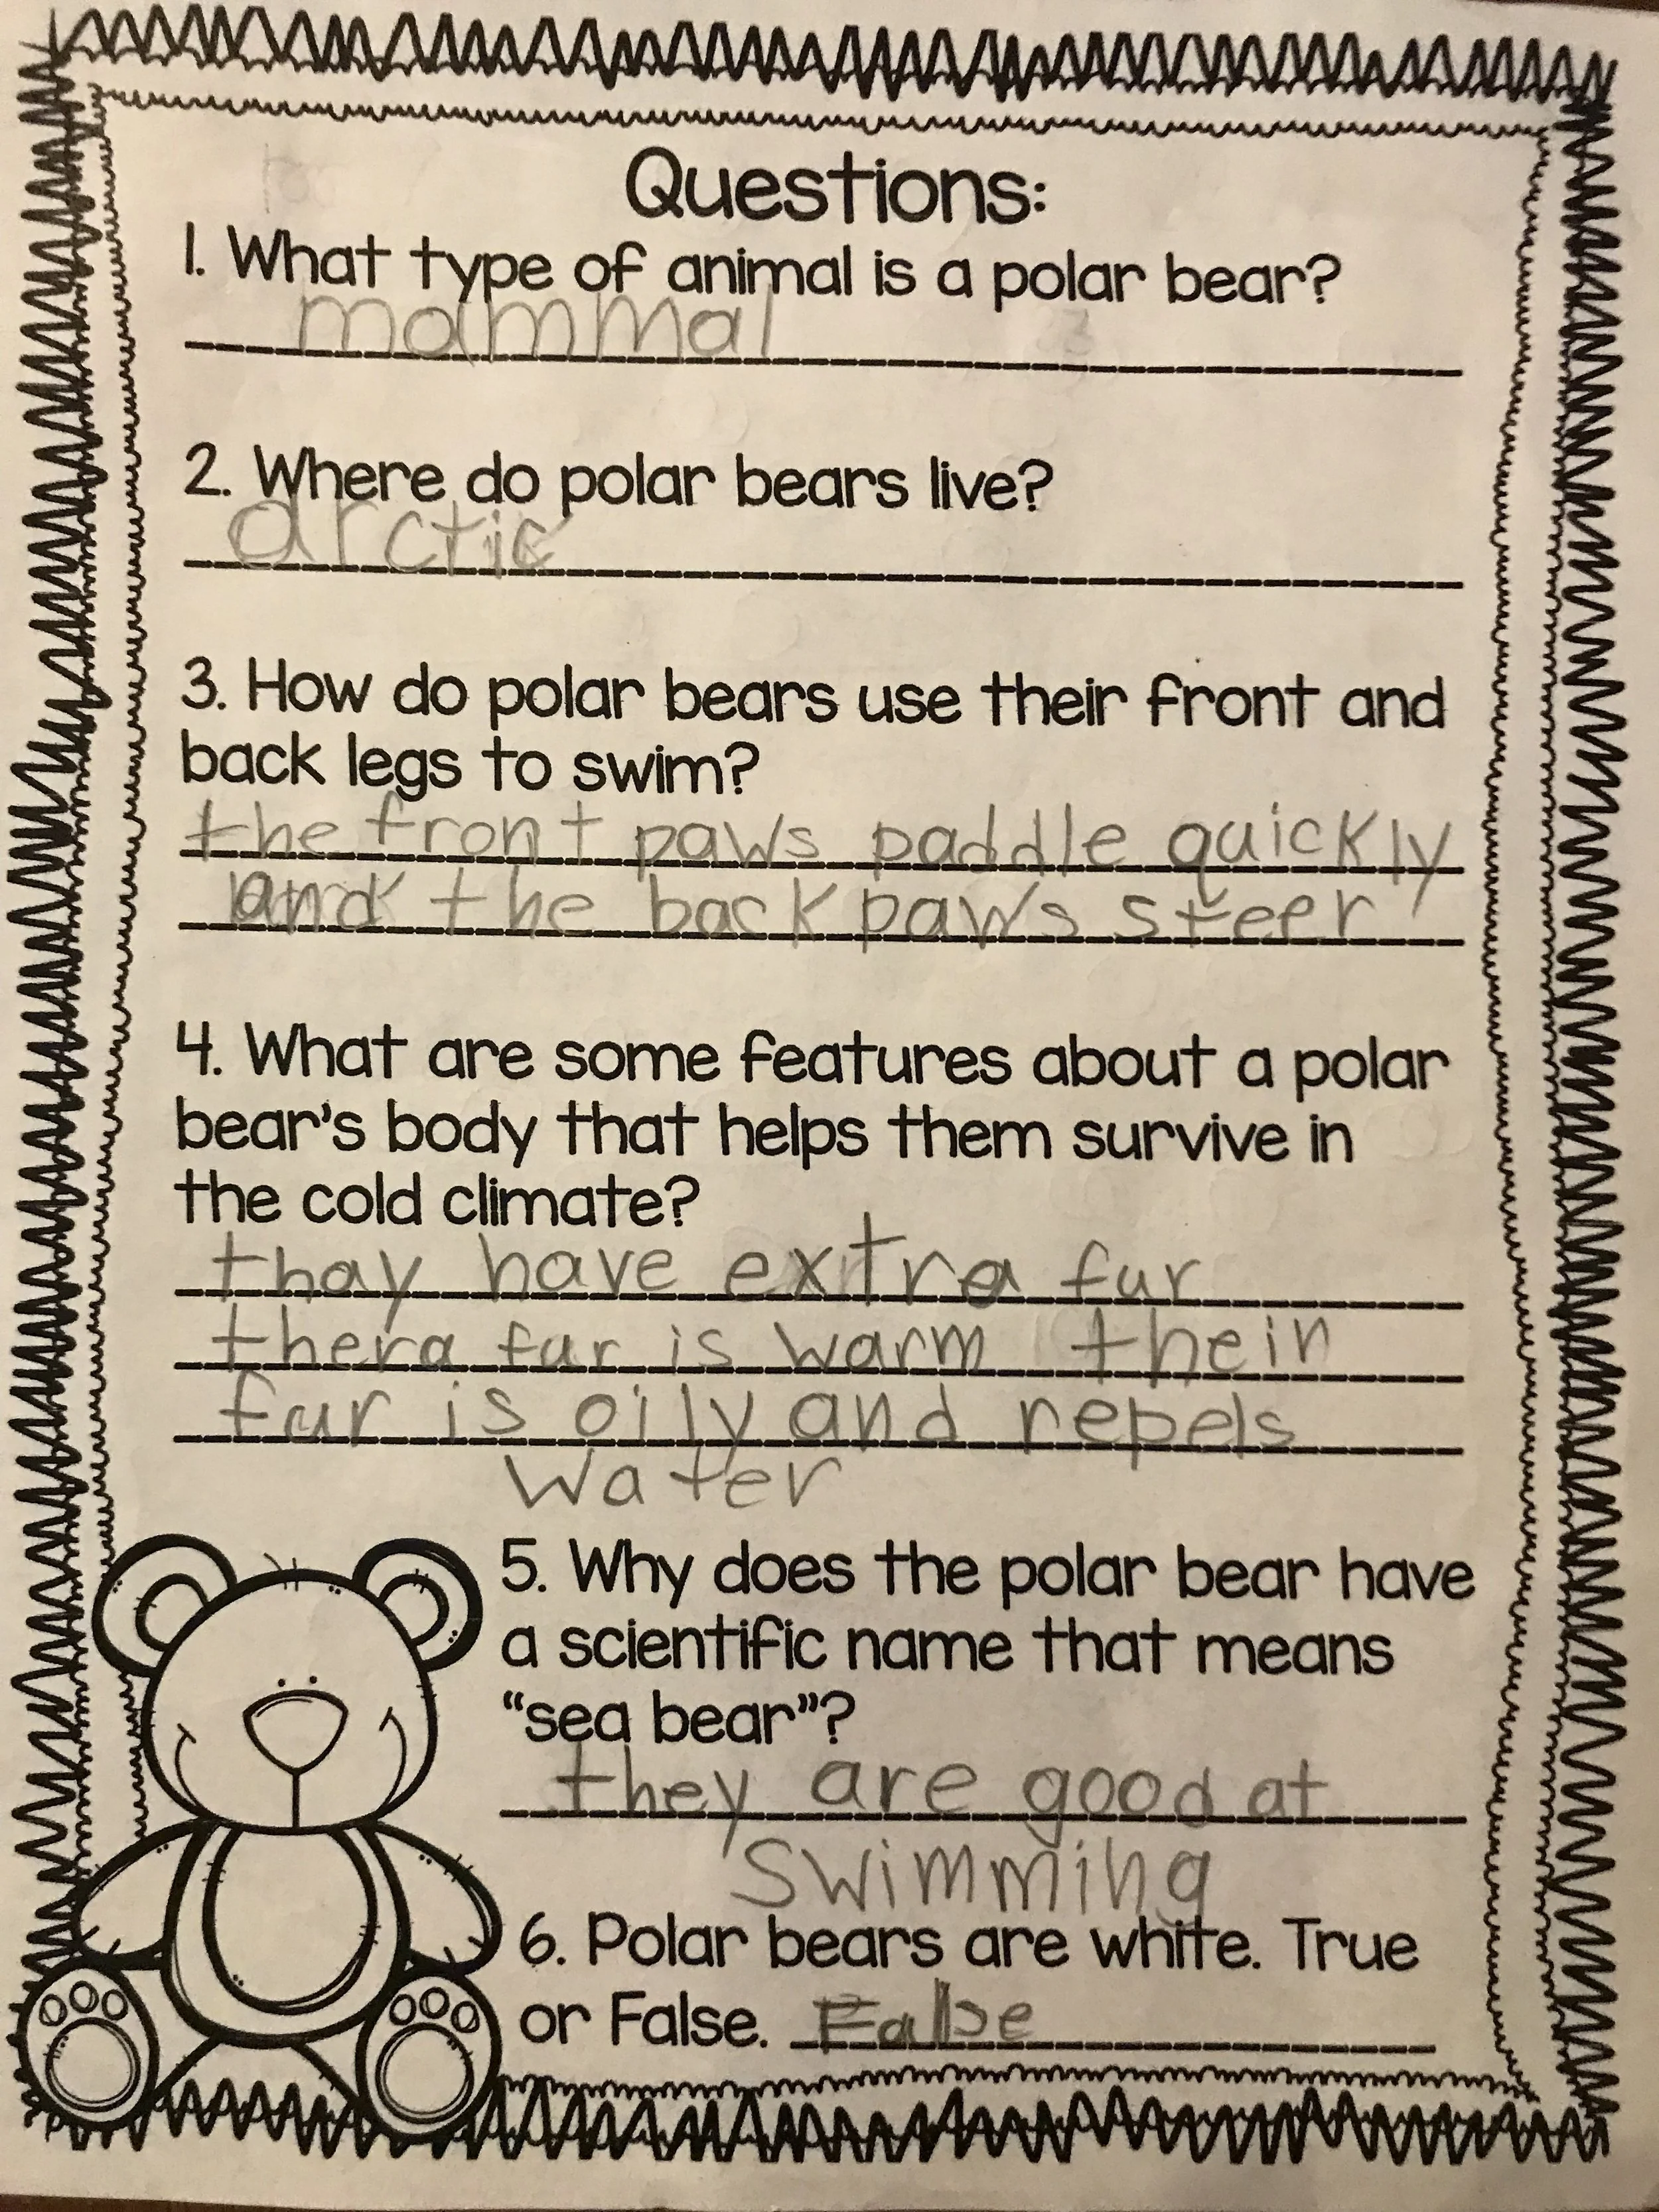 Questions:
1. What type of animal is a polar bear?
mammal
2. Where do polar bears live?
arctic
3. How do polar bears use their front and
back legs to swim?
the front paws paddle quickly
and the back paws steer
4. What are some features about a polar
bear's body that helps them survive in
the cold climate?
thay have extra fur
thera fur is warm their
fur is oily and repels
water
5. Why does the polar bear have
a scientific name that means
"sea bear"?
they are good at
swimming
6. Polar bears are white. True
or False. False